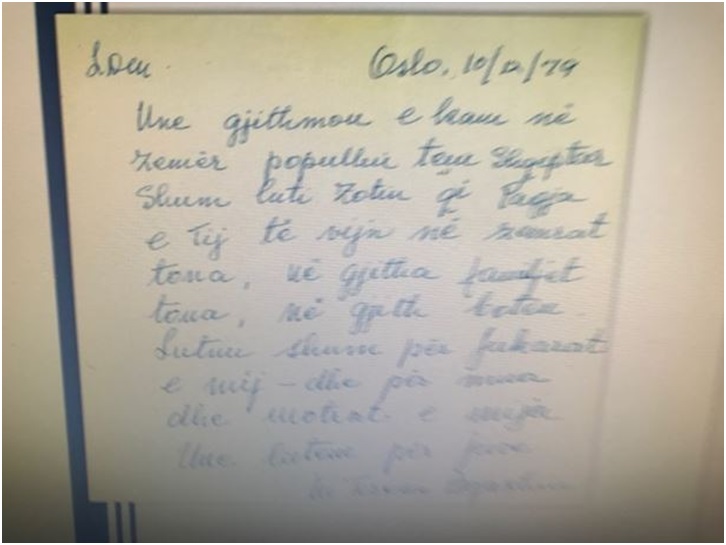 L.Deu Oslo, 10/12/79
Une gjithmon e kam në
Zemër popullin tem Shqiptar
Shum luti Zotin që Paqja
e Tij të vijn në zemrat
tona, në gjitha familjet
tona, në gjith boten.
Lutnu shum për fukarat
e mij – dhe për mua
dhe motrat e mija
Une lutem për juve